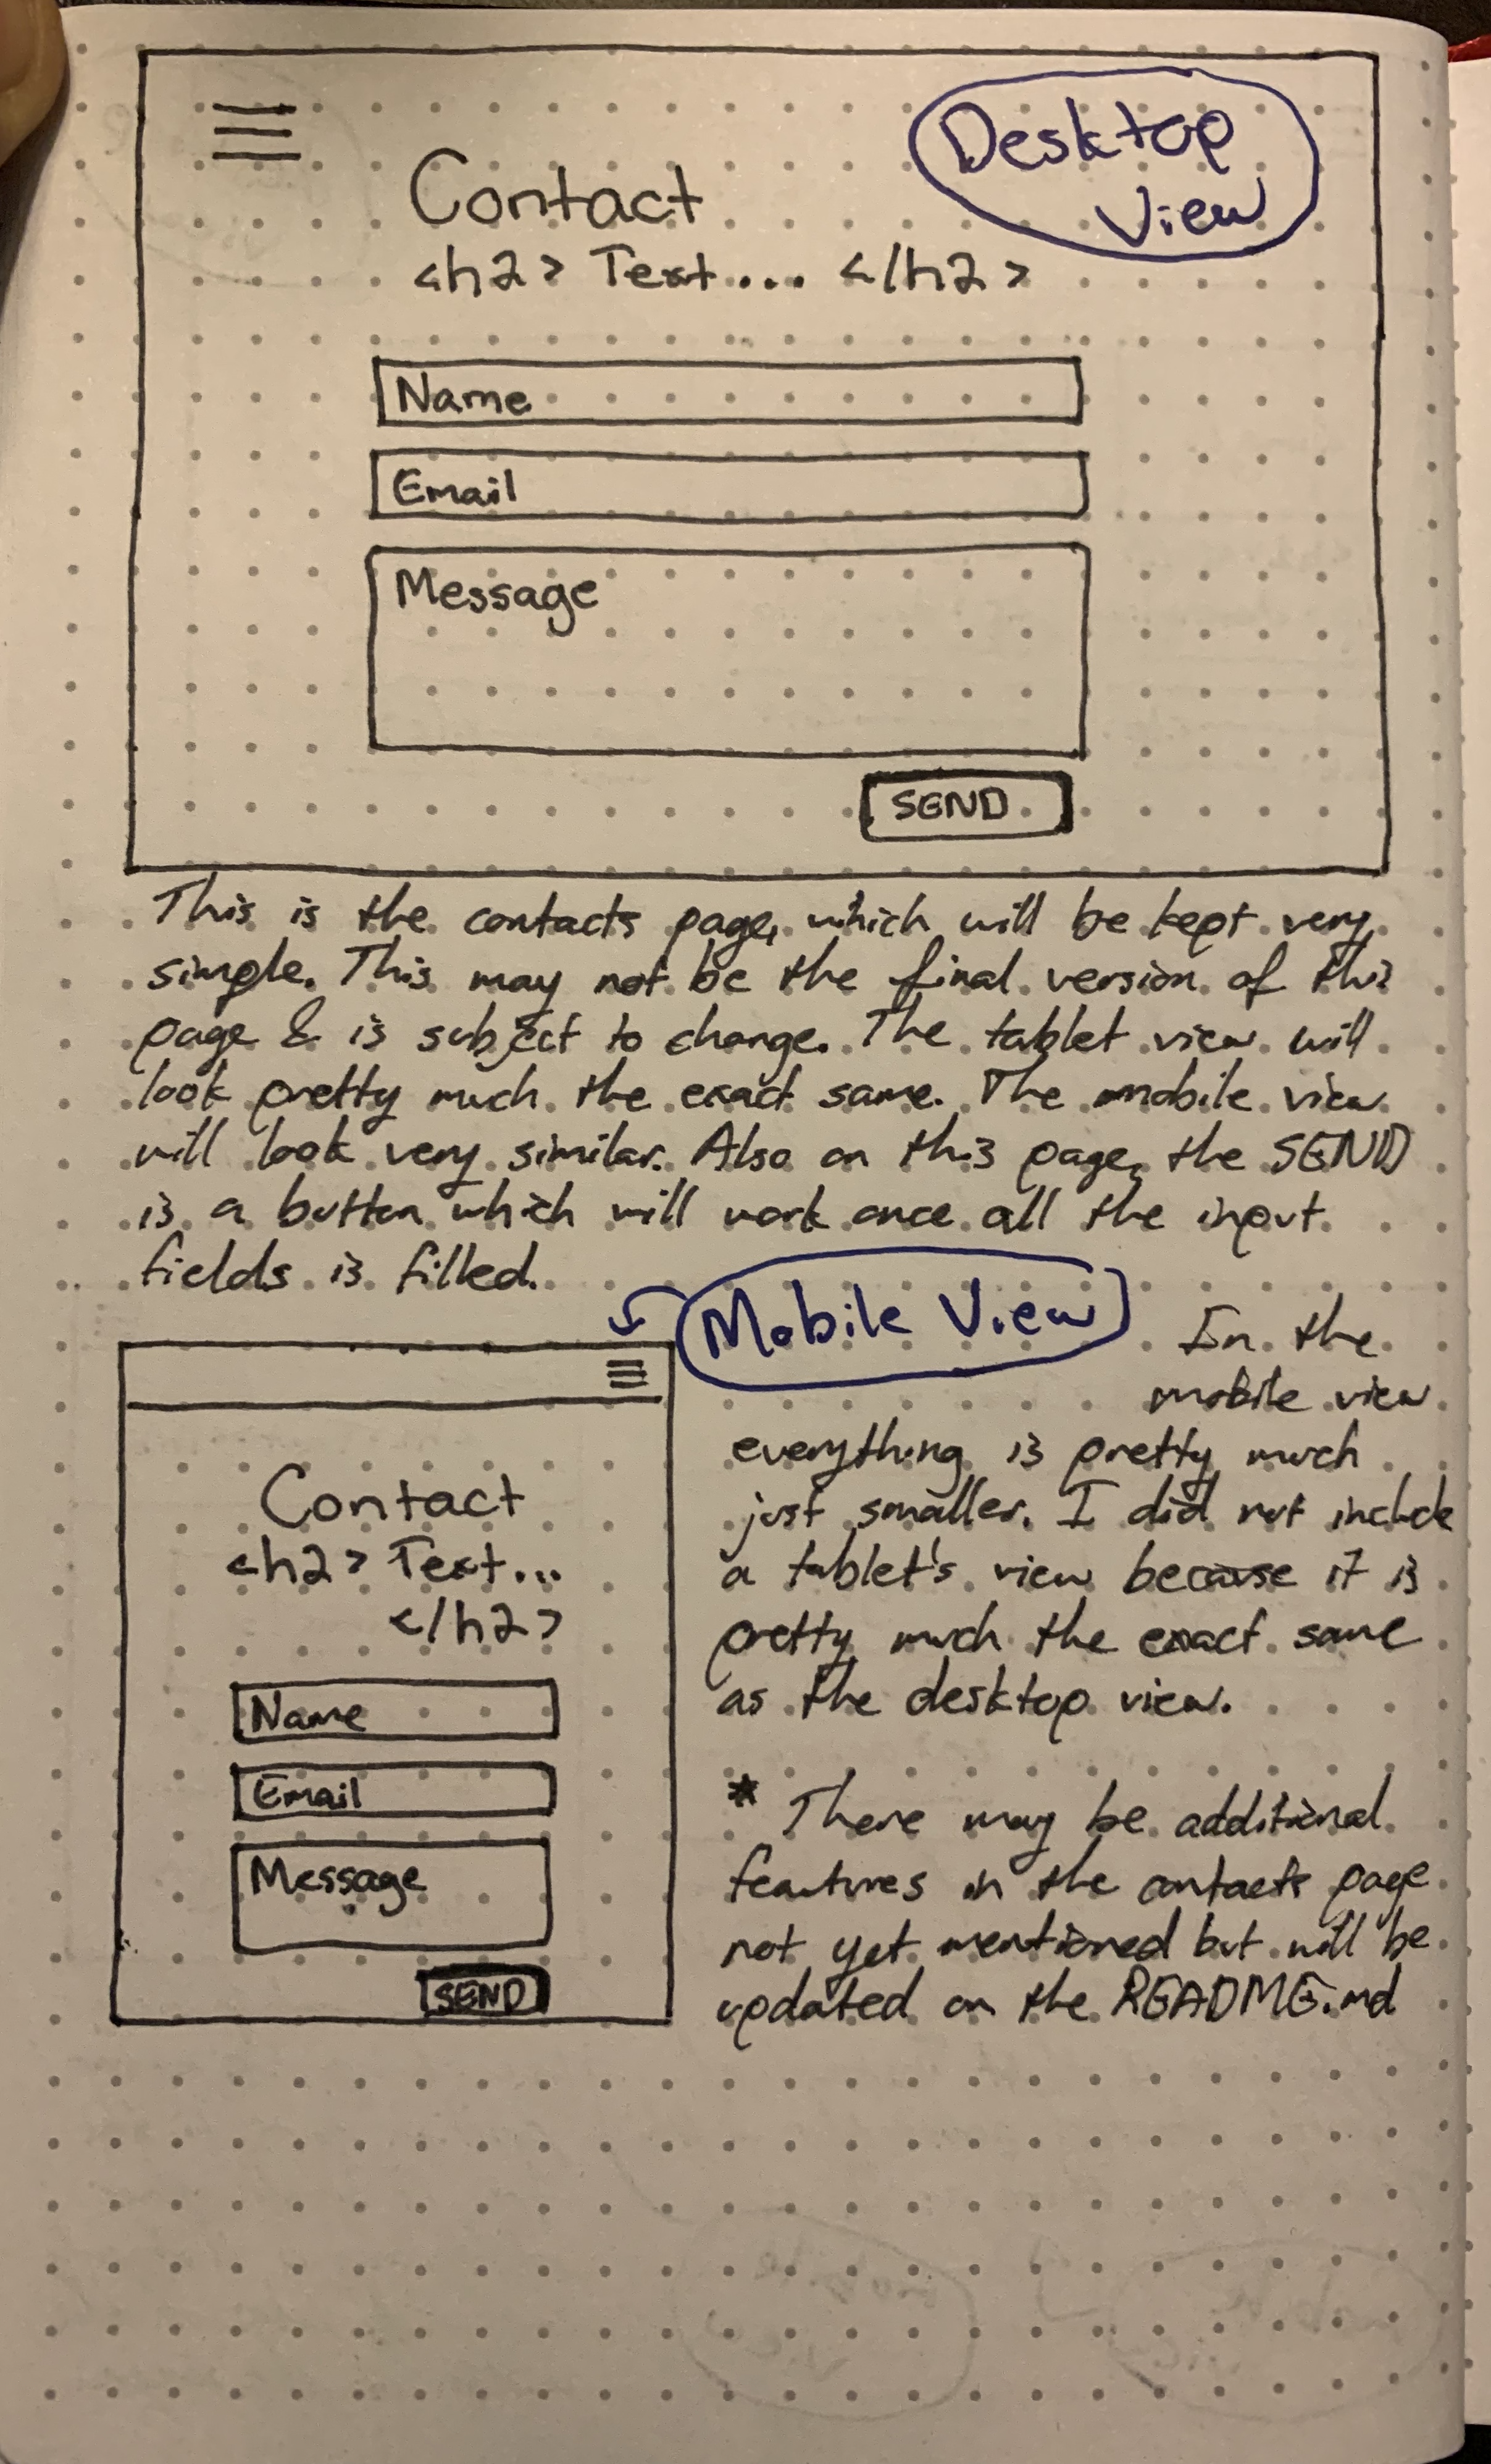 Desktop
View
Contact
<h2> Text.... </h2>
Name
Email
Message
SEND
This is the contacts page, which will be kept very
simple. This may not be the final version of this
page & is subject to change. The tablet view will
look pretty much the exact same. The mobile view
will look very similar. Also on this page, the SEND
is a button which will work once all the input
fields is filled.
Mobile View
Contact
<h2> Text...
</h2>
Name
Email
Message
SEND
In the
mobile view
everything is pretty much
just smaller. I did not include
a tablet's view because it is
pretty much the exact same
as the desktop view.
* There may be additional
features in the contacts page
not yet mentioned but will be
updated on the README.md